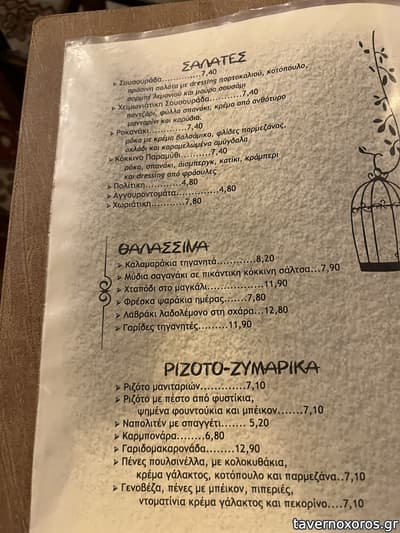 ΣΑΛΑΤΕΣ
➢ Σουσουράδα..............7,40
πράσινη σαλάτα με dressing πορτοκαλιού, κοτόπουλο,
σορμπέ λεμονιού και μαύρο σουσάμι
➢ Χειμωνιάτικη Σουσουράδα........7,40
παντζάρι, φύλλα σπανάκι, κρέμα από ανθότυρο
μανταρίνι και καρύδια.
➢ Ροκανάκι...............7,40
ρόκα με κρέμα βαλσάμικο, φλίδες παρμεζάνας,
αχλάδι και καραμελωμένα αμύγδαλα
➢ Κόκκινο Παραμύθι..........7,40
ρόκα, σπανάκι, άισμπεργκ, κατίκι, κράμπερι
και dressing από φράουλες
➢ Πολίτικη............4,80
➢ Αγγουροντομάτα..............4,80
➢ Χωριάτικη..........7,80
ΘΑΛΑΣΣΙΝΑ
➢ Καλαμαράκια τηγανητά............8,20
➢ Μύδια σαγανάκι σε πικάντικη κόκκινη σάλτσα...7,90
➢ Χταπόδι στο μαγκάλι.................11,90
➢ Φρέσκα ψαράκια ημέρας.......7,80
➢ Λαβράκι λαδολέμονο στη σχάρα...12,80
➢ Γαρίδες τηγανητές.........11,90
ΡΙΖΟΤΟ-ΖΥΜΑΡΙΚΑ
➢ Ριζότο μανιταριών............7,10
➢ Ριζότο με πέστο από φυστίκια,
ψημένα φουντούκια και μπέικον.......7,10
➢ Ναπολιτέν με σπαγγέτι....... 5,20
➢ Καρμπονάρα.......6,80
➢ Γαριδομακαρονάδα..........12,90
➢ Πένες πουλσινέλλα, με κολοκυθάκια,
κρέμα γάλακτος, κοτόπουλο και παρμεζάνα..7,10
➢ Γενοβέζα, πένες με μπέικον, πιπεριές,
ντοματίνια κρέμα γάλακτος και πεκορίνο....7,10
tavernoxoros.gr